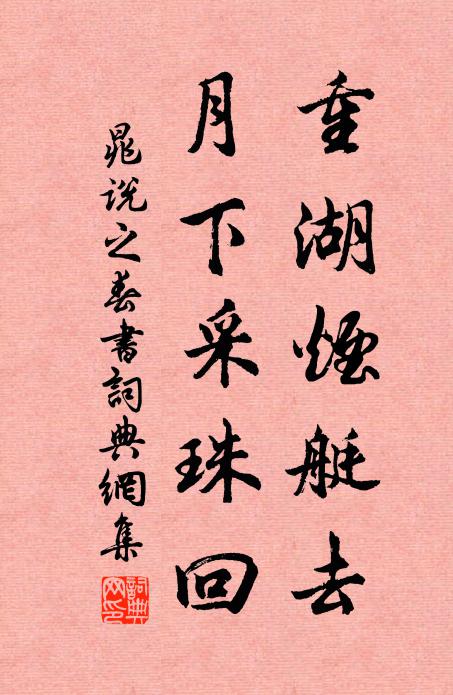 重湖煙艇去
月下采珠回
晁說之春書詞典網集
詞典
网印